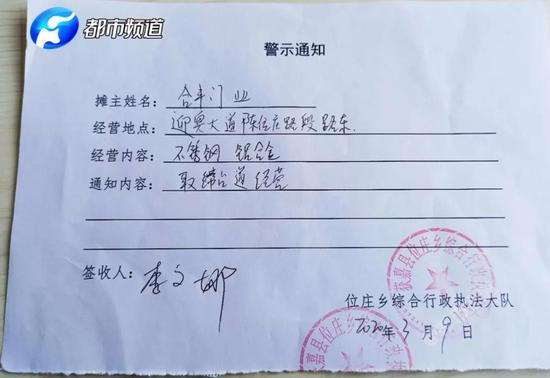 都市频道
警示通知
摊主姓名：合丰门业
经营地点：迎奥大道陈位庄路段路东.
经营内容：不锈钢 铝合金
通知内容：取缔占道经营
签收人：李文娜
获嘉县位庄乡综合行政执法
位庄乡综合行政执法大队
2020年3月9日
获嘉县位庄乡综合行政执